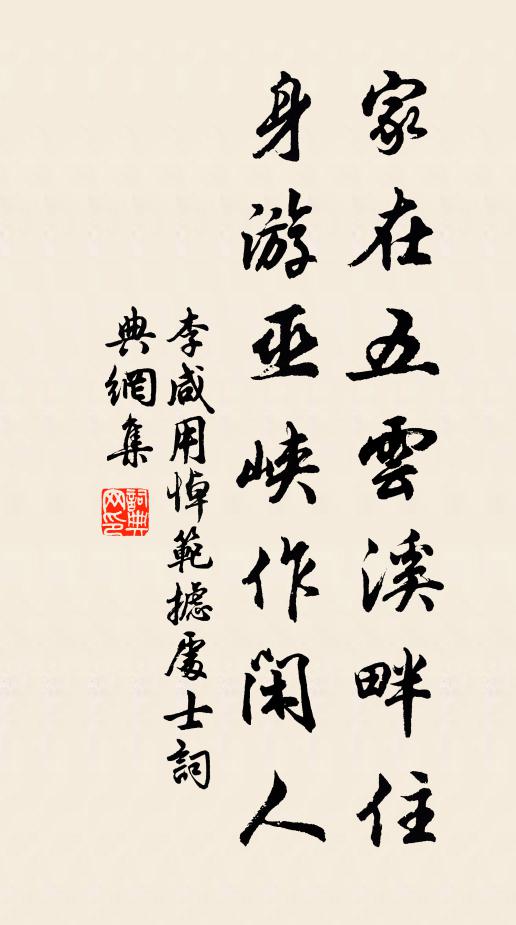 家在五雲溪畔住
身游巫峽作閑人
李咸用悼範攄處士詞
典網集
詞典网印